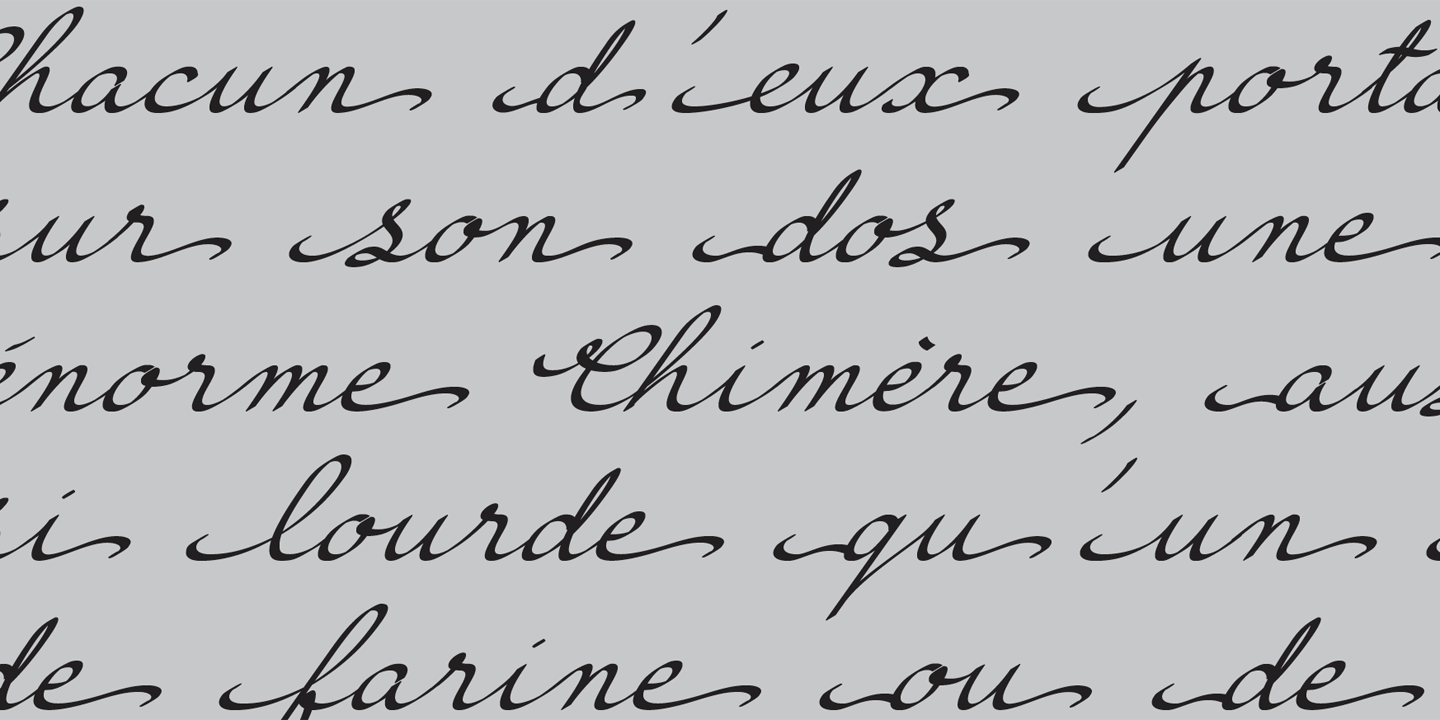 Chacun d'eux porta
sur son dos une
énorme Chimère, aus
si lourde qu'un
de farine ou de